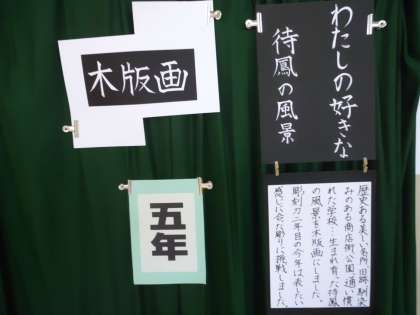 木版画
五年
わたしの好きな
待鳳の風景
歴史ある美しい名所旧跡、馴染
みのある商店街、公園、通い慣
れた学校…生まれ育った待鳳
の風景を木版画にしました。
彫刻刀二年目の今年は表したい
感じに合た彫りに挑戦しました。